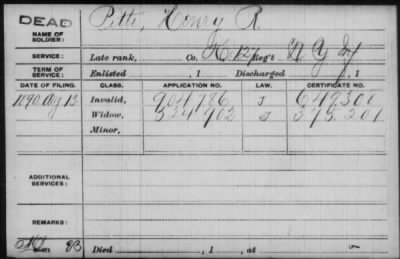 DEAD
NAME OF SOLDIER: Pitts, Henry R.
SERVICE: Late rank, Co. K. 127 Reg't N Y Inf
TERM OF SERVICE: Enlisted , 1 Discharged , 1
DATE OF FILING. CLASS. APPLICATION NO. LAW. CERTIFICATE NO.
1890 Aug 12 Invalid, 904,796 J 649,300
Widow, 524,902 J 375,201
Minor,
ADDITIONAL SERVICES:
REMARKS:
Died , 1 , at